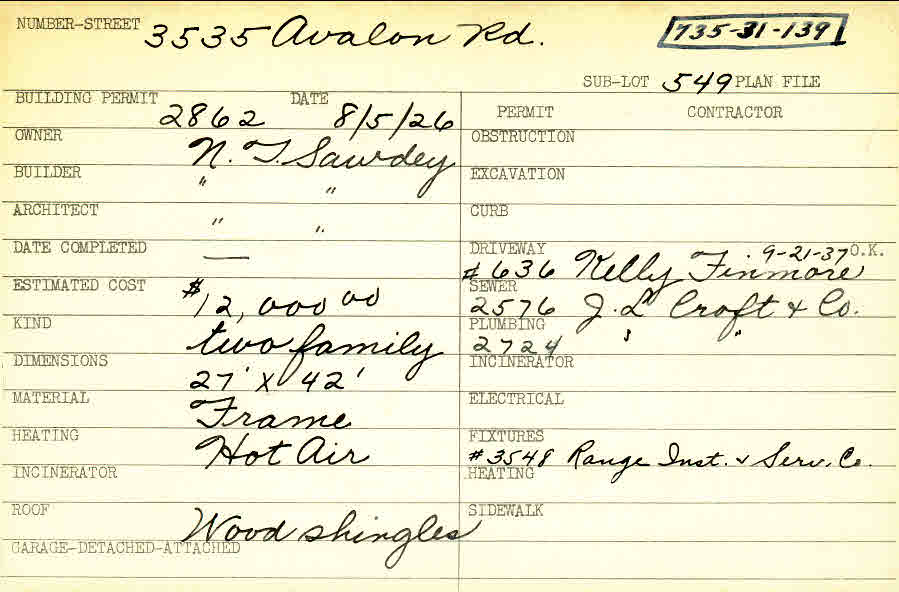 NUMBER-STREET 3535 Avalon Rd. 735-31-139
SUB-LOT 549 PLAN FILE
BUILDING PERMIT 2862 DATE 8/5/26 PERMIT CONTRACTOR
OWNER N. T. Sawdey OBSTRUCTION
BUILDER " " EXCAVATION
ARCHITECT " " CURB
DATE COMPLETED — DRIVEWAY #636 Kelly Finmore 9-21-37 O.K.
ESTIMATED COST $12,000 00 SEWER 2576 J. L Croft & Co.
KIND two family PLUMBING 2724 " "
DIMENSIONS 27' X 42' INCINERATOR
MATERIAL Frame ELECTRICAL
HEATING Hot Air FIXTURES #3548 Range Inst. & Serv. Co.
INCINERATOR HEATING
ROOF Wood shingles SIDEWALK
GARAGE-DETACHED-ATTACHED